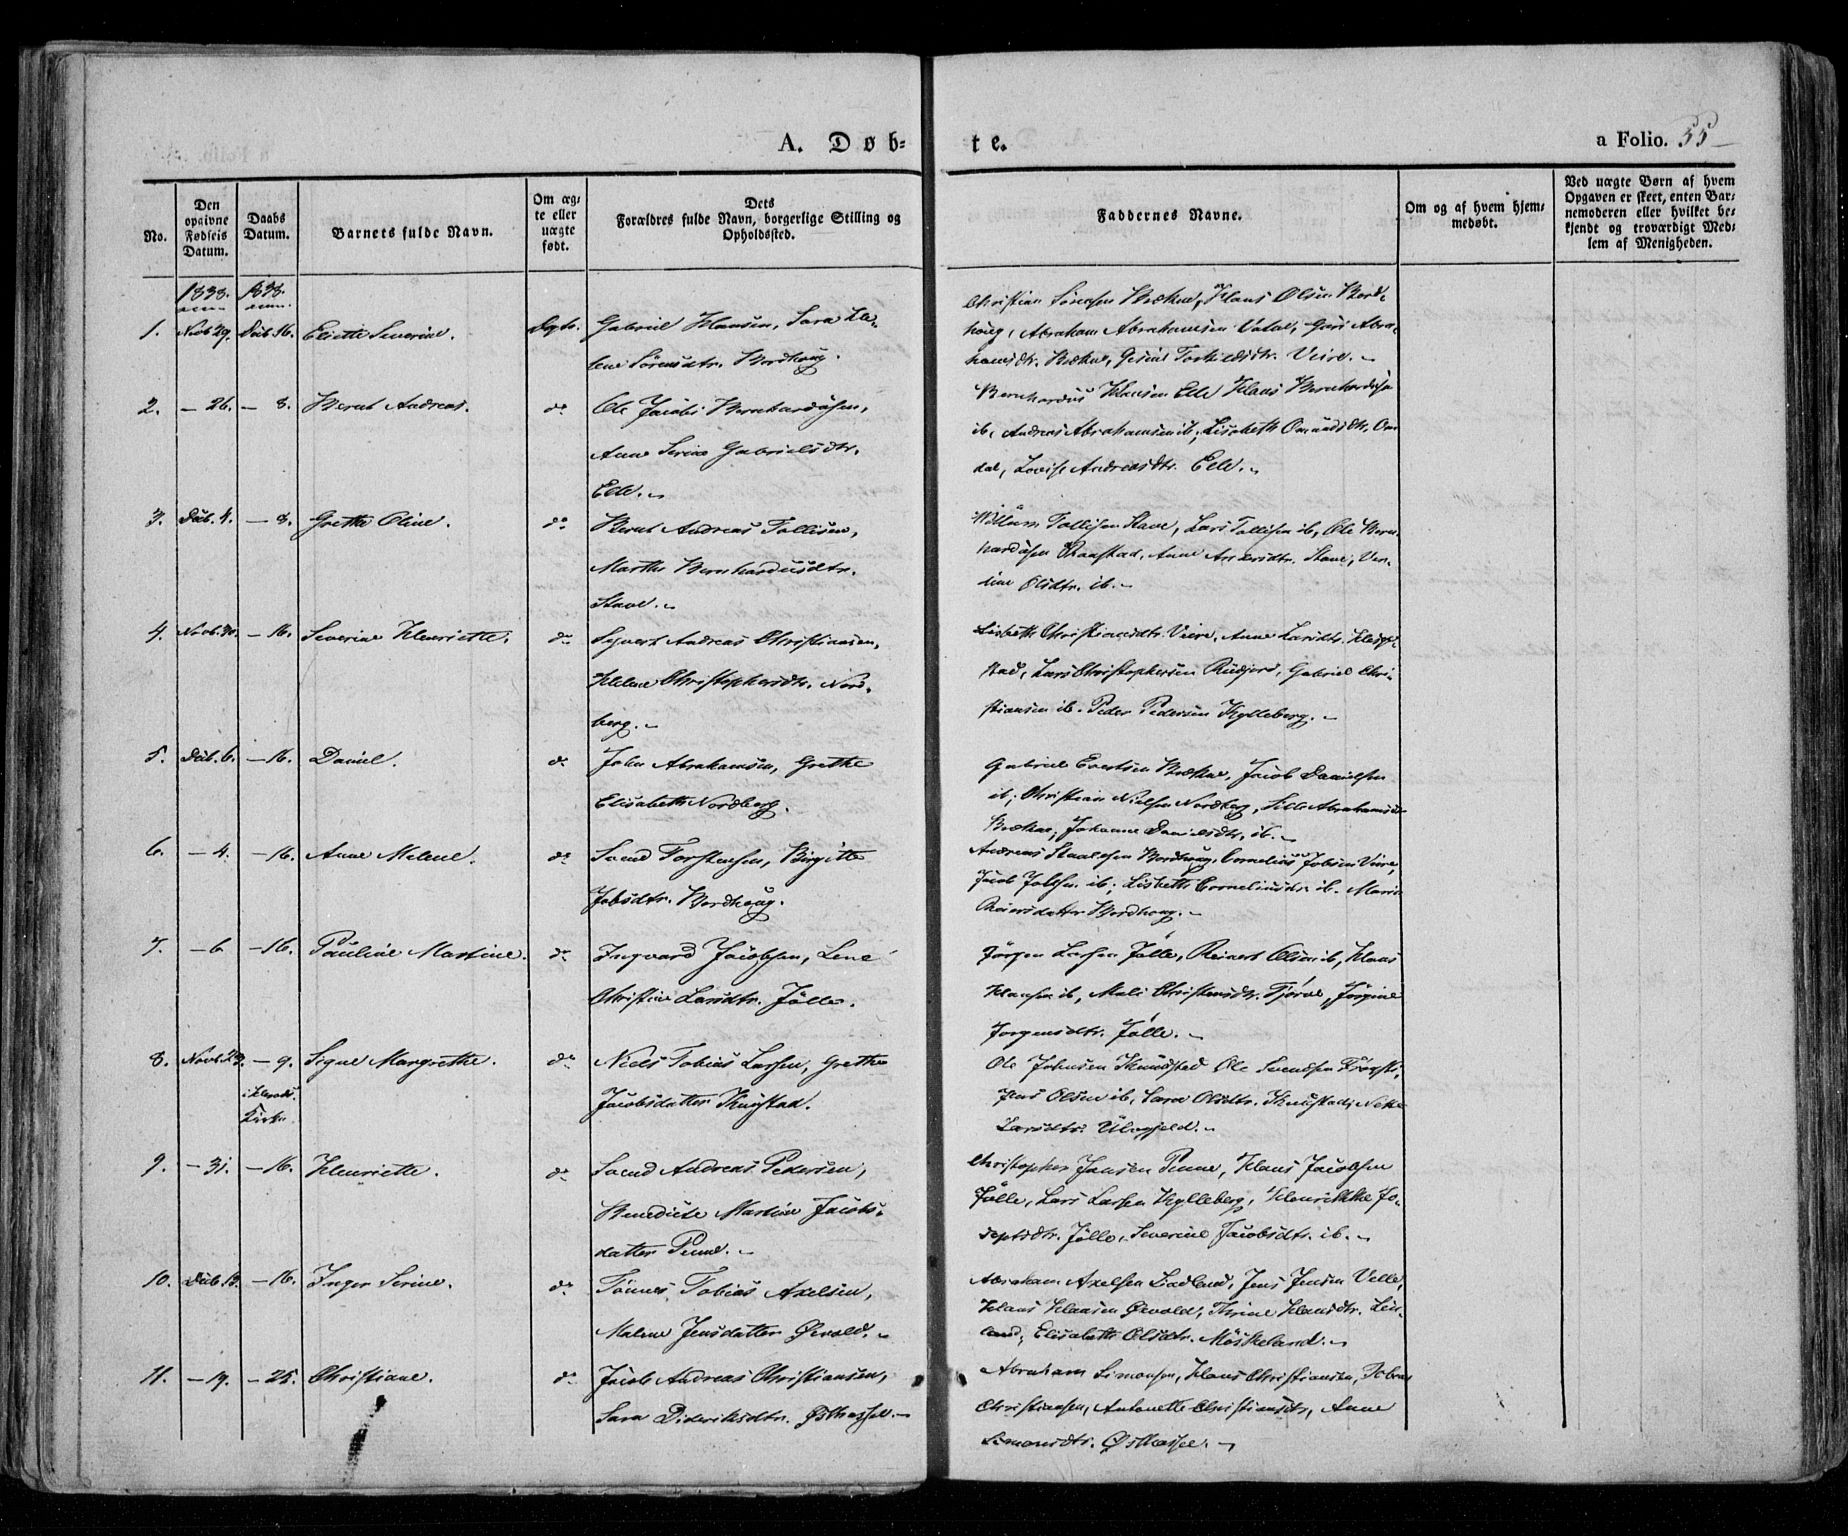 A. Døb-
te.
a Folio. 55
No.
Den
opgivne
Fødsels
Datum.
Daabs
Datum.
Barnets fulde Navn.
Om æg-
te eller
uægte
født.
Dets
Forældres fulde Navn, borgerlige Stilling og
Opholdssted.
Faddernes Navne.
Om og af hvem hjem-
medøbt.
Ved uægte Børn af hvem
Opgaven er skeet, enten Bar-
nemoderen eller hvilket be-
kjendt og troværdigt Med-
lem af Menigheden.
1838. 1838.
1. Novb. 29. Decb. 16. Eliette Severine. Ægte. Gabriel Hansen, Sara He-
lene Sørensdtr. Bordhoug.
Christian Sørensen Brekne, Hans Olsen Bord-
houg, Abraham Abrahamsen Vatne, Guri Abra-
hamsdtr. Brekne, Gesine Torkildsdtr. Veire.
2. — 26. — 8. Bernt Andreas. do Ole Jacob Bernhardusen,
Anne Serine Gabrielsdtr.
Eele.
Bernhardus Hansen Eele, Hans Bernhardusen
ib, Andreas Abrahamsen ib, Lisabeth Omundsdtr. Om-
dal, Lovise Andreasdtr. Eele.
3. Decb. 4. — 8. Grethe Oline. do Bernt Andreas Tollisen,
Marthe Bernhardusdtr.
Stave.
Willum Tollisen Stave, Lars Tollisen ib, Ole Bern-
hardusen Skaastad, Anne Andersdtr. Stave,
Olsdtr. ib.
4. Novb. 30. — 16. Severine Henriette. do Syvert Andreas Christiansen,
Helene Christophersdtr. Nord-
berg.
Lisbeth Christiansdtr. Veire, Anne Larsdtr.
stad, Lars Christophersen Rudjord, Gabriel Chri-
stiansen ib. Peder Pedersen Kylleberg.
5. Decb. 6. — 16. Daniel. do John Abrahamsen, Grethe
Elisabeth Nordberg.
Gabriel Evertsen Brekne, Jacob Danielsen
ib, Christian Nielsen Nordberg, Sille Abrahamsd.
Brekne, Johanne Danielsdtr. ib.
6. — 4. — 16. Anne Malene. do Svend Torstensen, Birgitte
Jobsdtr. Bordhoug.
Andreas Bordhoug, Cornelius Jobsen Veire,
Jacob Jobsen ib, Lisbeth Corneliusdtr. ib. Maria
Reiersdatter Bordhoug.
7. — 6 — 16. Pauline Martine. do Ingvard Jacobsen, Lene
Christine Larsdtr. Jølle.
Jørgen Larsen Jølle, Reinert Olsen ib, Hans
Hansen ib, Mali Christensdtr. Tjørve, Jørgine
Jørgensdtr. Jølle.
8. Novb. 23. — 9. Signe Margrethe. do Niels Tobias Larsen, Grethe
i Herads
Kirke
Jacobsdatter Skugstad.
Ole Johnsen Ole Svendsen
Jens Olsen ib, Sara Olsdtr. Nille
Larsdtr. Ulvgjeld.
9. — 31. — 16. Henriette. do Svend Andreas Pedersen,
Benedicte Martine Jacobs-
datter Penne.
Christopher Jansen Penne, Hans Jacobsen
Jølle, Lars Larsen Kylleberg, Henrikke Jo-
sephsdtr. Jølle, Severine Jacobsdtr. ib.
10. Decb. 13. — 16. Inger Serine. do Tønnes Tobias Axelsen,
Malene Jensdatter Øivold.
Abraham Axelsen Ladland, Jens Jensen Velle,
Hans Hansen Øivold, Thrine Hansdtr. Lin-
land, Elisabeth Olsdtr. Møskeland.
11. — 19. — 25. Christiane. do Jacob Andreas Christiansen,
Sara Dideriksdtr. Østhassel.
Abraham Simonsen, Hans Christiansen, Tobias
Christiansen, Antonette Christiansdtr, Anne
Simonsdtr. Østhassel.